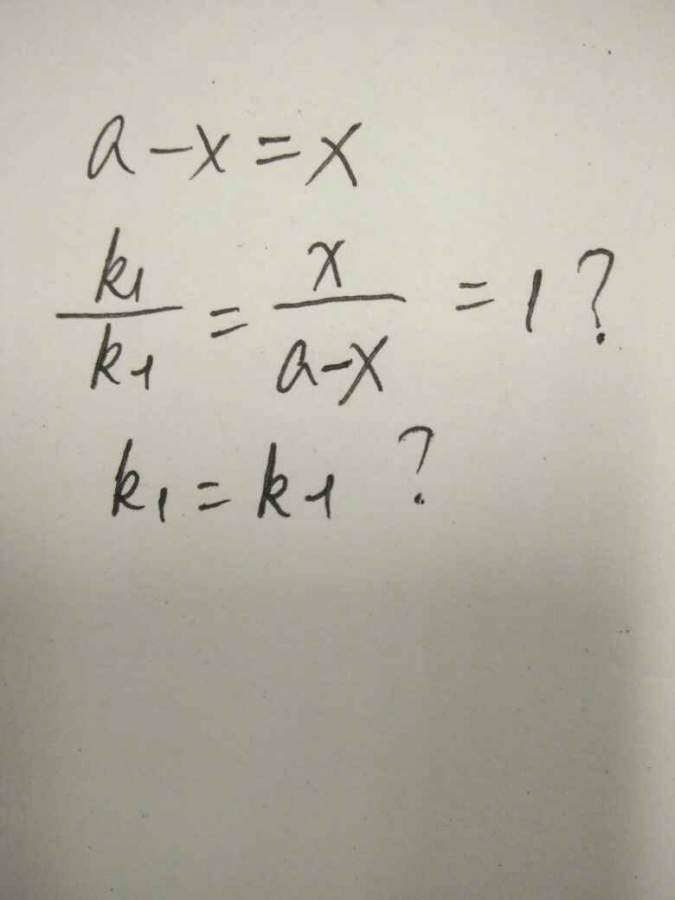 a-x=x
k₁/k-1 = x/a-x = 1?
k₁=k-1 ?